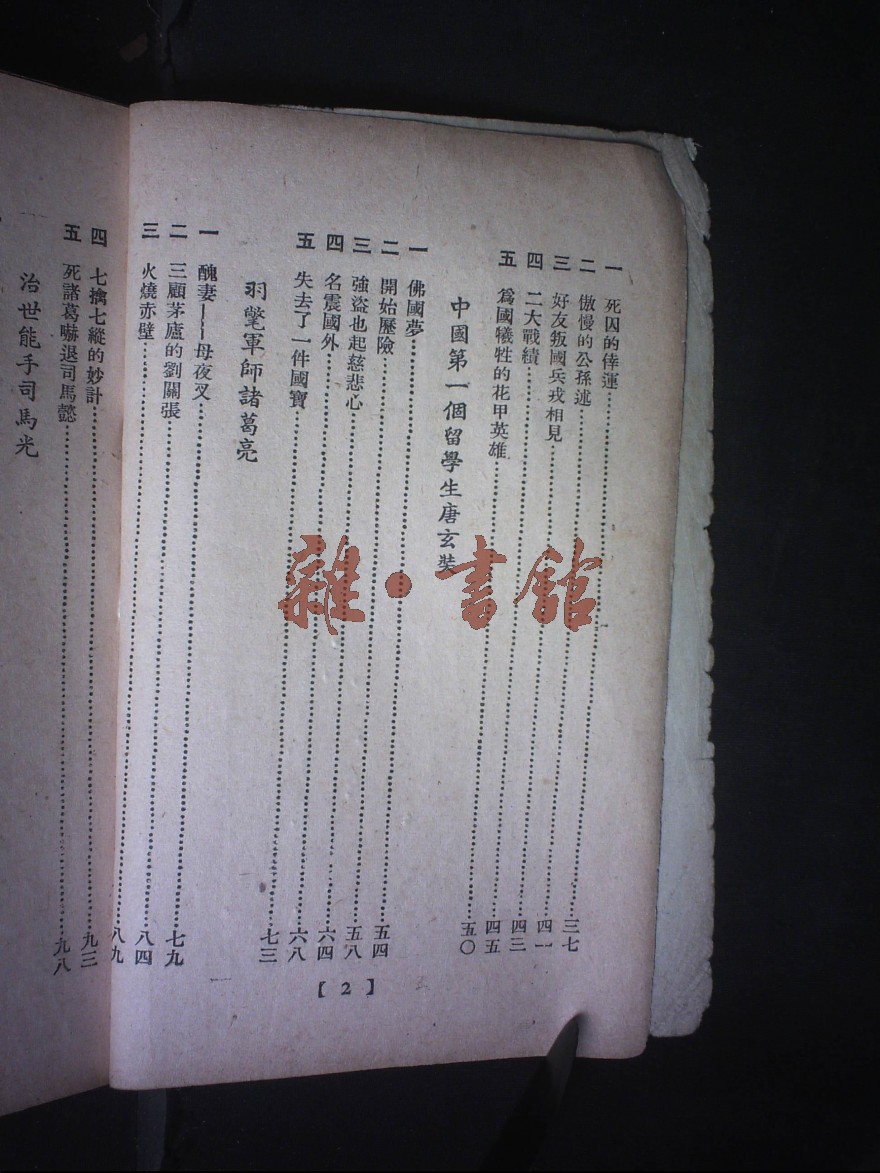 一 死囚的倖運……三七
二 傲慢的公孫述……四一
三 好友叛國兵戎相見……四三
四 二大戰績……四五
五 爲國犧牲的花甲英雄……五〇
中國第一個留學生唐玄奘
一 佛國夢……五四
二 開始歷險……五八
三 強盜也起慈悲心……六四
四 名震國外……六八
五 失去了一件國寶……七三
羽氅軍師諸葛亮
一 醜妻——母夜叉……七九
二 三顧茅廬的劉關張……八四
三 火燒赤壁……八九
四 七擒七縱的妙計……九三
五 死諸葛嚇退司馬懿……九八
治世能手司馬光
【2】
雜·書館